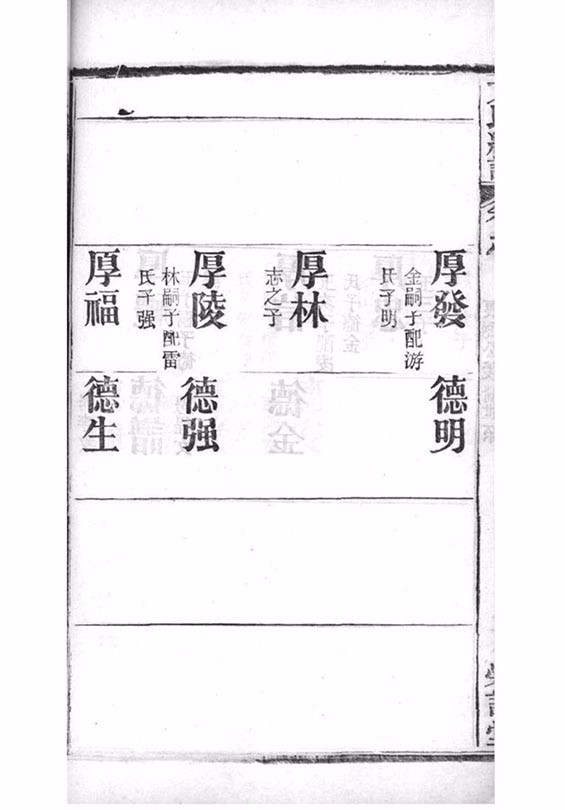 厚發
金嗣子配游
氏子明
厚林
志之子
厚陵
林嗣子配雷
氏子强
厚福
德明
德强
德生